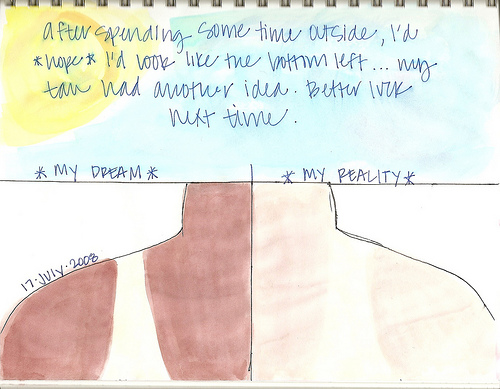 after spending some time outside, I'd
*hope* I'd look like the bottom left... my
tan had another idea. Better luck
next time.
* MY DREAM *
* MY REALITY *
17·JULY·2008